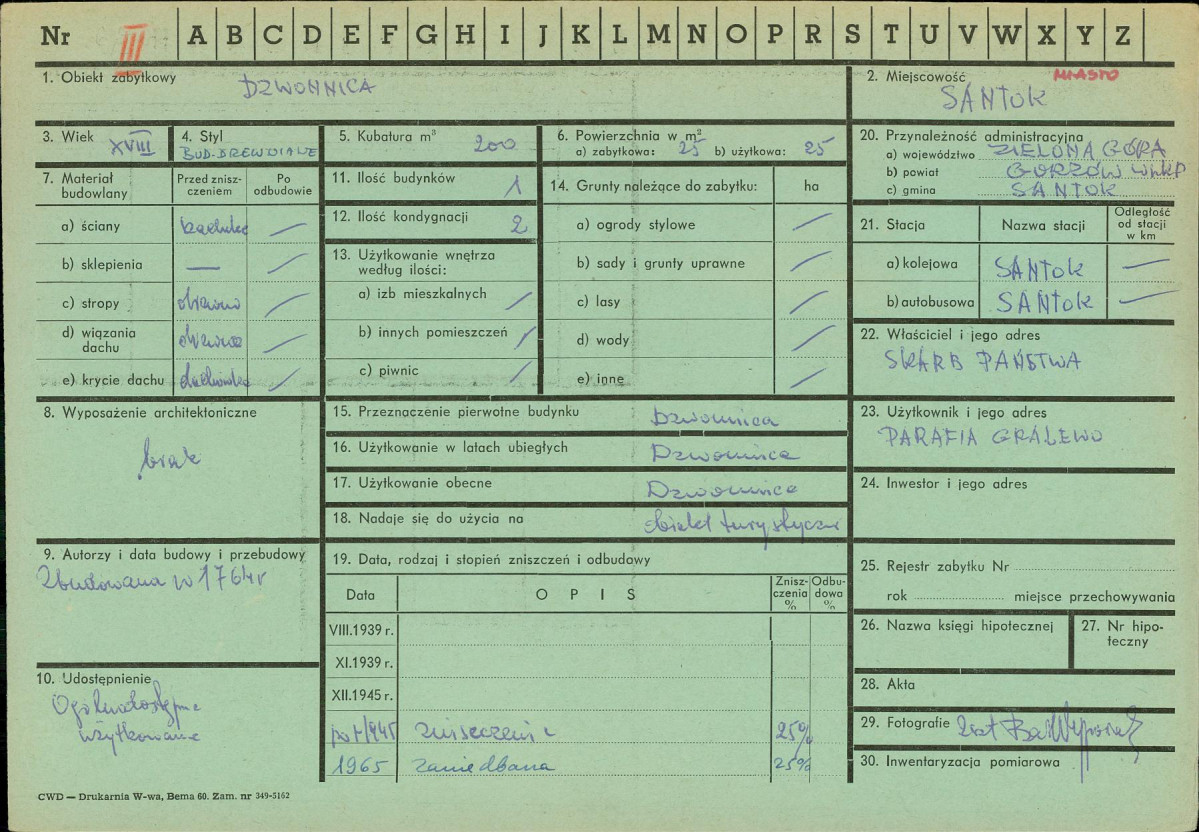 Nr III A B C D E F G H I J K L M N O P R S T U V W X Y Z
1. Obiekt zabytkowy
DZWONNICA
2. Miejscowość MIASTO
SANTOK
3. Wiek XVIII
4. Styl
BUD. DREWNIANE
5. Kubatura m³ 200
6. Powierzchnia w m²
a) zabytkowa: 25 b) użytkowa: 25
20. Przynależność administracyjna
a) województwo ZIELONA GÓRA
b) powiat GORZÓW WLKP
c) gmina SANTOK
7. Materiał budowlany
Przed zniszczeniem
Po odbudowie
a) ściany —
b) sklepienia — —
c) stropy drewno —
d) wiązania dachu drewno —
e) krycie dachu dachówka —
11. Ilość budynków 1
12. Ilość kondygnacji 2
13. Użytkowanie wnętrza
według ilości:
a) izb mieszkalnych /
b) innych pomieszczeń /
c) piwnic /
14. Grunty należące do zabytku: ha
a) ogrody stylowe —
b) sady i grunty uprawne —
c) lasy —
d) wody —
e) inne —
21. Stacja Nazwa stacji Odległość od stacji w km
a) kolejowa SANTOK —
b) autobusowa SANTOK —
22. Właściciel i jego adres
SKARB PAŃSTWA
8. Wyposażenie architektoniczne
brak
15. Przeznaczenie pierwotne budynku Dzwonnica
16. Użytkowanie w latach ubiegłych Dzwonnica
17. Użytkowanie obecne Dzwonnica
18. Nadaje się do użycia na obiekt turystyczny
23. Użytkownik i jego adres
PARAFIA GRALEWO
24. Inwestor i jego adres
9. Autorzy i data budowy i przebudowy
Zbudowana w 1764 r
19. Data, rodzaj i stopień zniszczeń i odbudowy
Data O P I S Zniszczenia % Odbudowa %
VIII.1939 r.
XI.1939 r.
XII.1945 r.
po 1945 zniszczenie 25%
1965 zaniedbana 25%
25. Rejestr zabytku Nr
rok miejsce przechowywania
26. Nazwa księgi hipotecznej
27. Nr hipoteczny
10. Udostępnienie
Ogólnodostępne
użytkowanie
28. Akta
29. Fotografie
30. Inwentaryzacja pomiarowa
CWD — Drukarnia W-wa, Bema 60. Zam. nr 349-5162